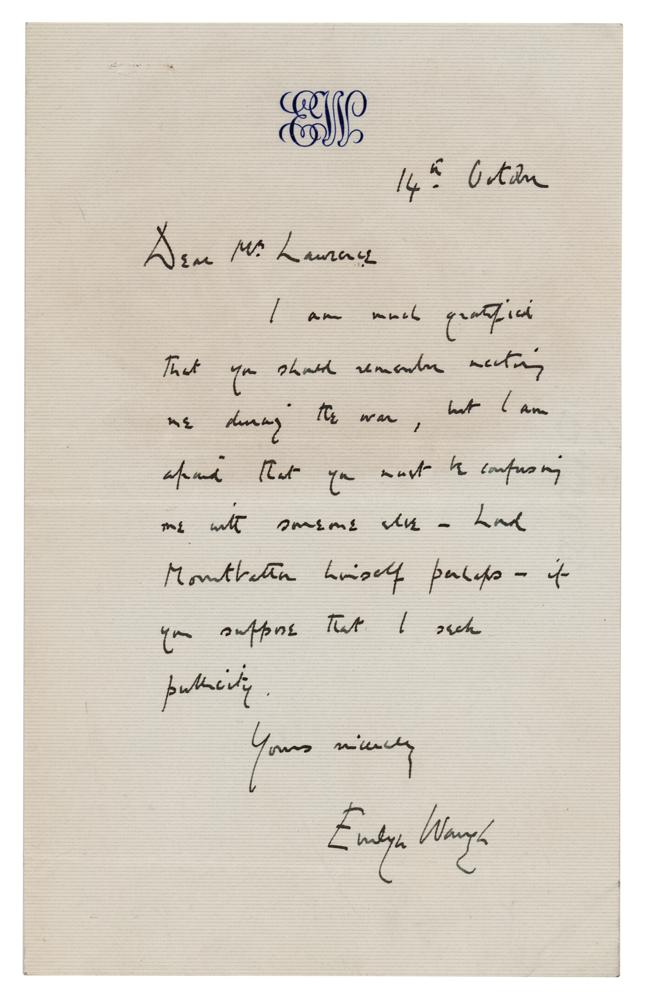 EW
14th October
Dear Mr Lawrence
I am much gratified
that you should remember meeting
me during the war, but I am
afraid that you must be confusing
me with someone else – Lord
Mountbatten himself perhaps – if
you suppose that I seek
publicity.
Yours sincerely
Evelyn Waugh